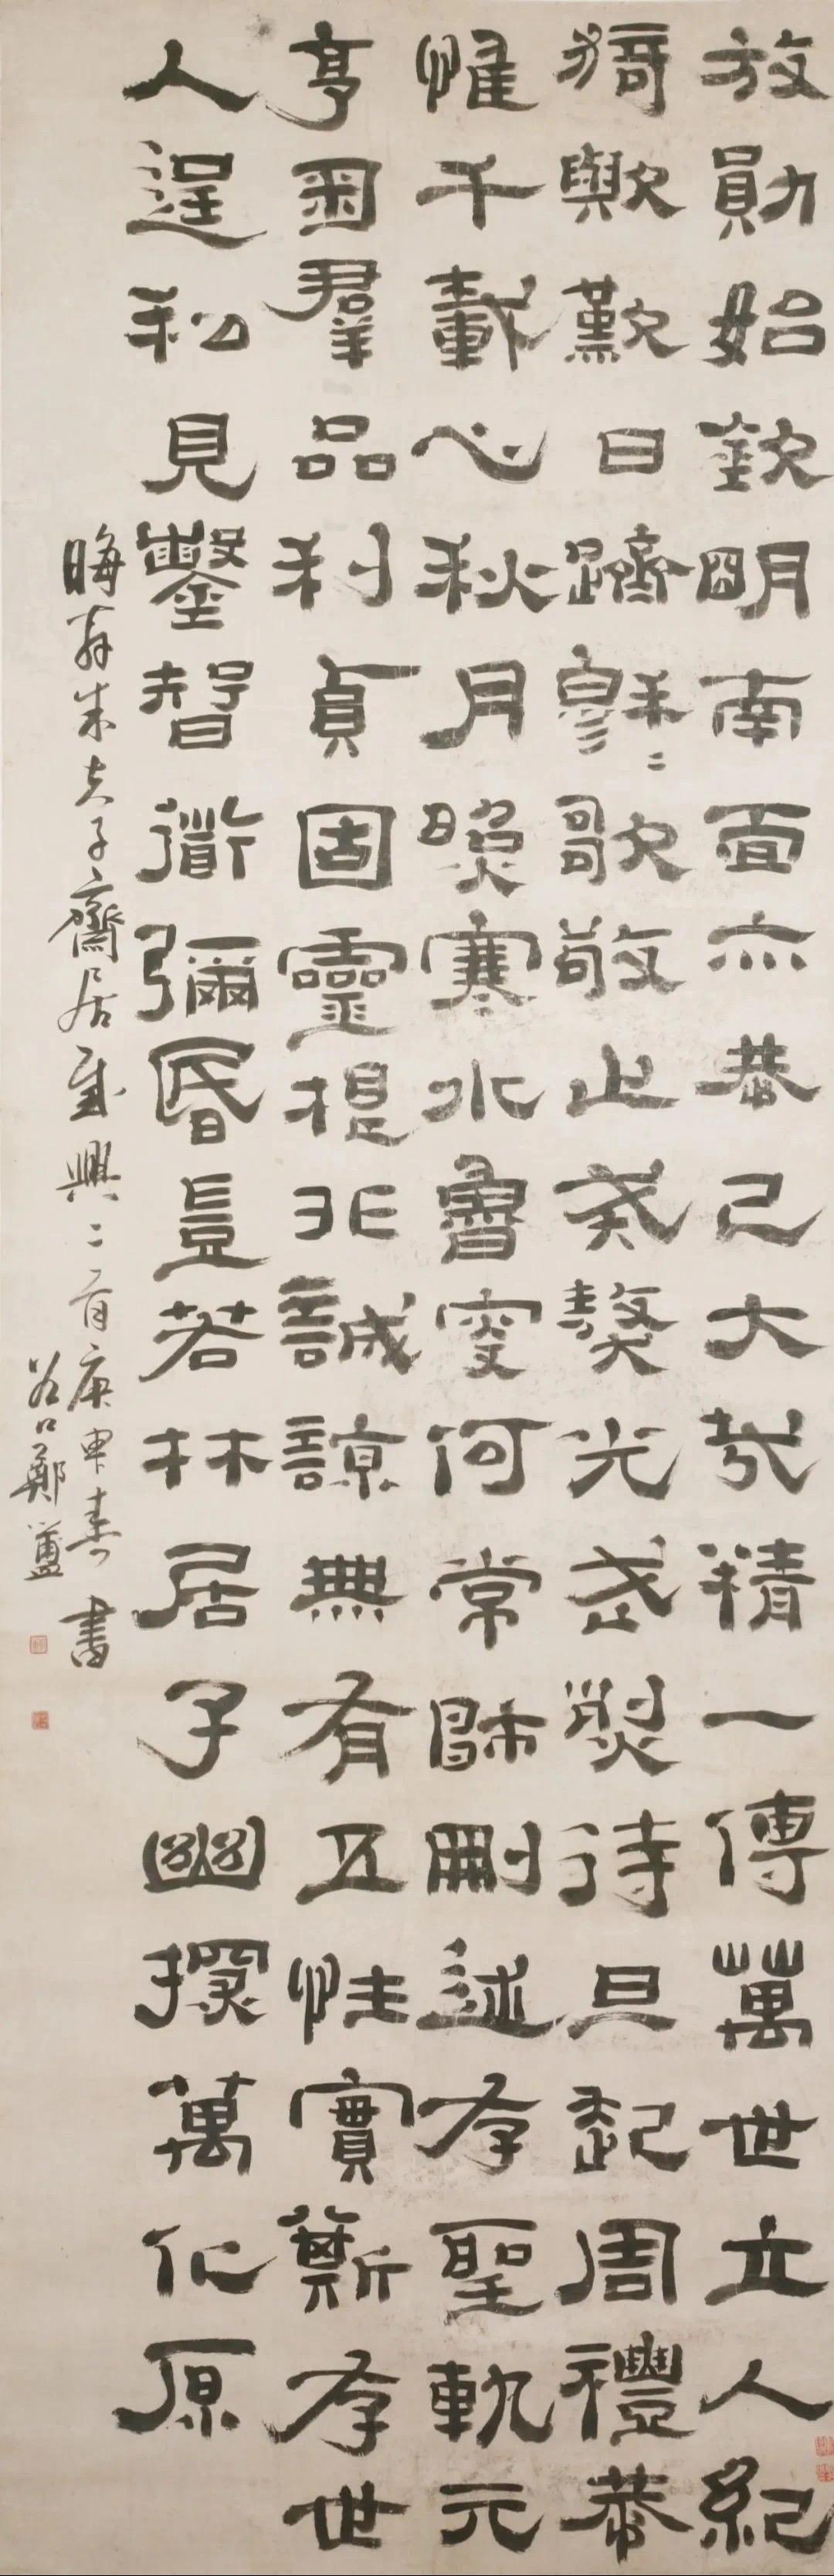 放勛始欽明南面亦恭己大哉精一傳萬世立人紀
猗歟歎日躋穆〻歌敬止戒獒光武烈待旦起周禮恭
惟千載心秋月照寒水魯叟何常師刪述存聖軌元
亨群品利貞固靈根非誠諒無有五性實斯存世
人逞私見鑿智道彌昏豈若林居子幽探萬化原
晦菴朱夫子齋居感興二首庚申春書
谷口鄭簠